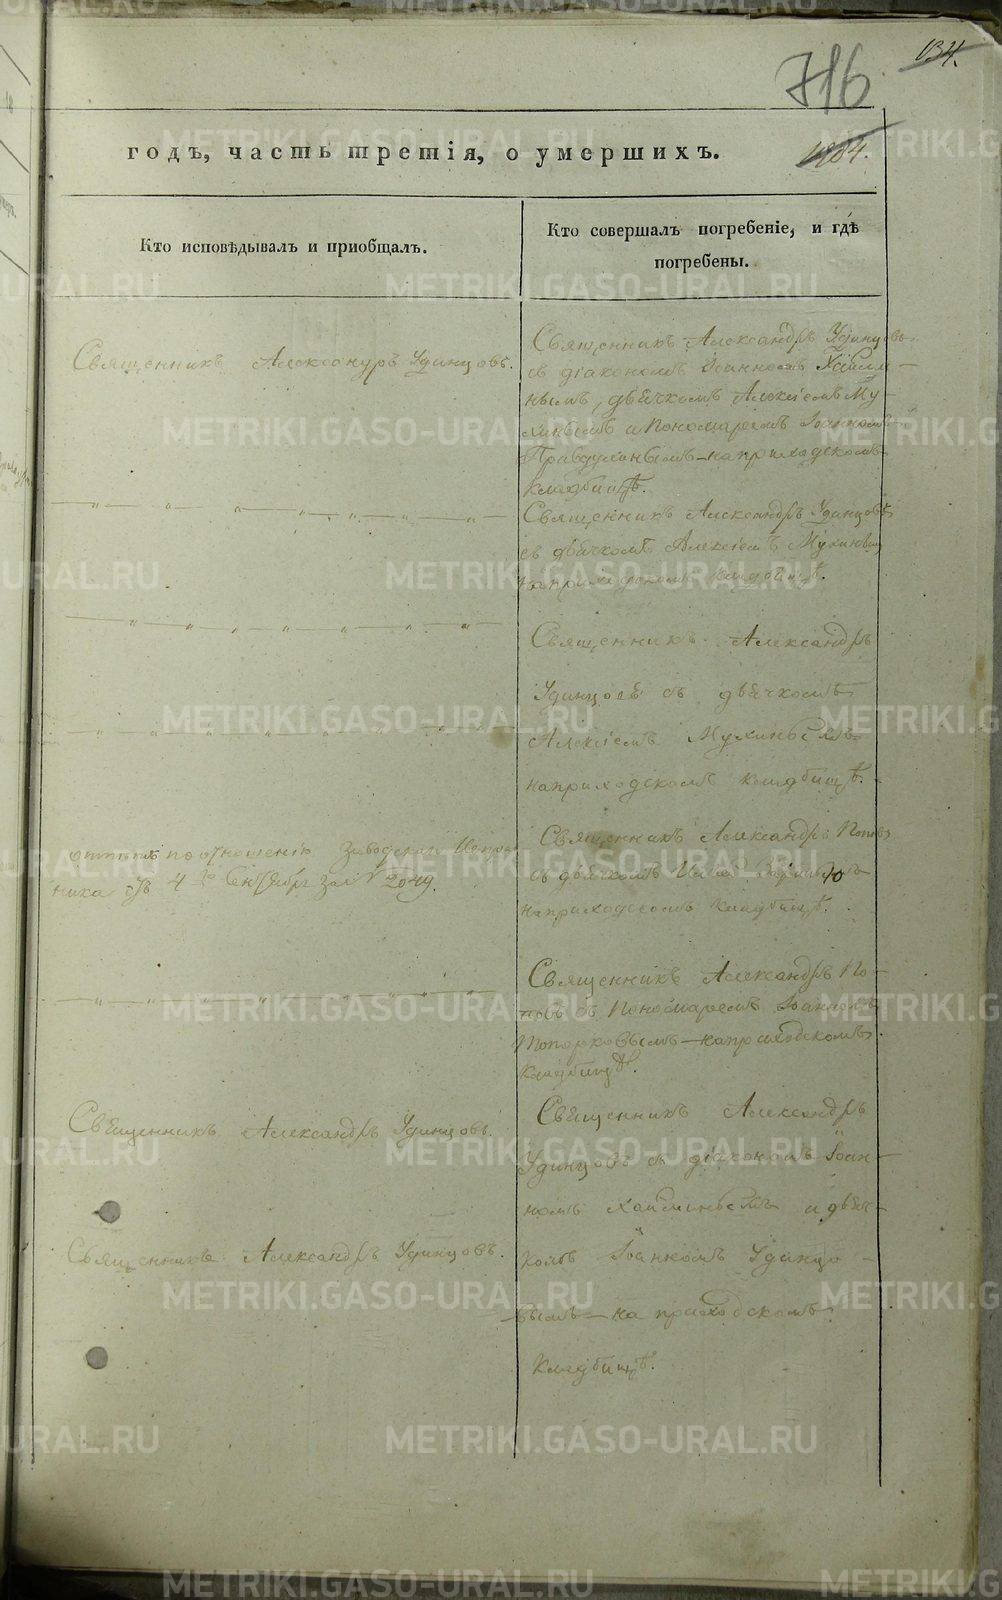 716
134.
годъ, часть третія, о умершихъ.
Кто исповѣдывалъ и приобщалъ.
Кто совершалъ погребеніе, и гдѣ
погребены.
Священникъ Александръ Удинцовъ.
Священникъ Александръ Удинцовъ
съ діакономъ Іоанномъ
нымъ, дьячкомъ Алексіемъ Му-
хинымъ и Пономаремъ Іоанномъ
Правдухинымъ – на приходскомъ
кладбищѣ.
Священникъ Александръ Удинцовъ
съ дьячкомъ Алексіемъ Мухинымъ
на приходскомъ кладбищѣ.
Священникъ Александръ
Удинцовъ съ дьячкомъ
Алексіемъ Мухинымъ
на приходскомъ кладбищѣ.
по отношенію Заводскаго Исправ
ника отъ 4го Сентября за № 2049.
Священникъ Александръ Поповъ
съ дьячкомъ
на приходскомъ кладбищѣ.
Священникъ Александръ По-
повъ съ Пономаремъ Іоанномъ
Топорковымъ – на приходскомъ
кладбищѣ.
Священникъ Александръ Удинцовъ.
Священникъ Александръ
Удинцовъ съ діакономъ Іоан-
номъ и дьяч-
комъ Іоанномъ Удинцо-
вымъ – на приходскомъ
кладбищѣ.
Священникъ Александръ Удинцовъ.
METRIKI.GASO-URAL.RU